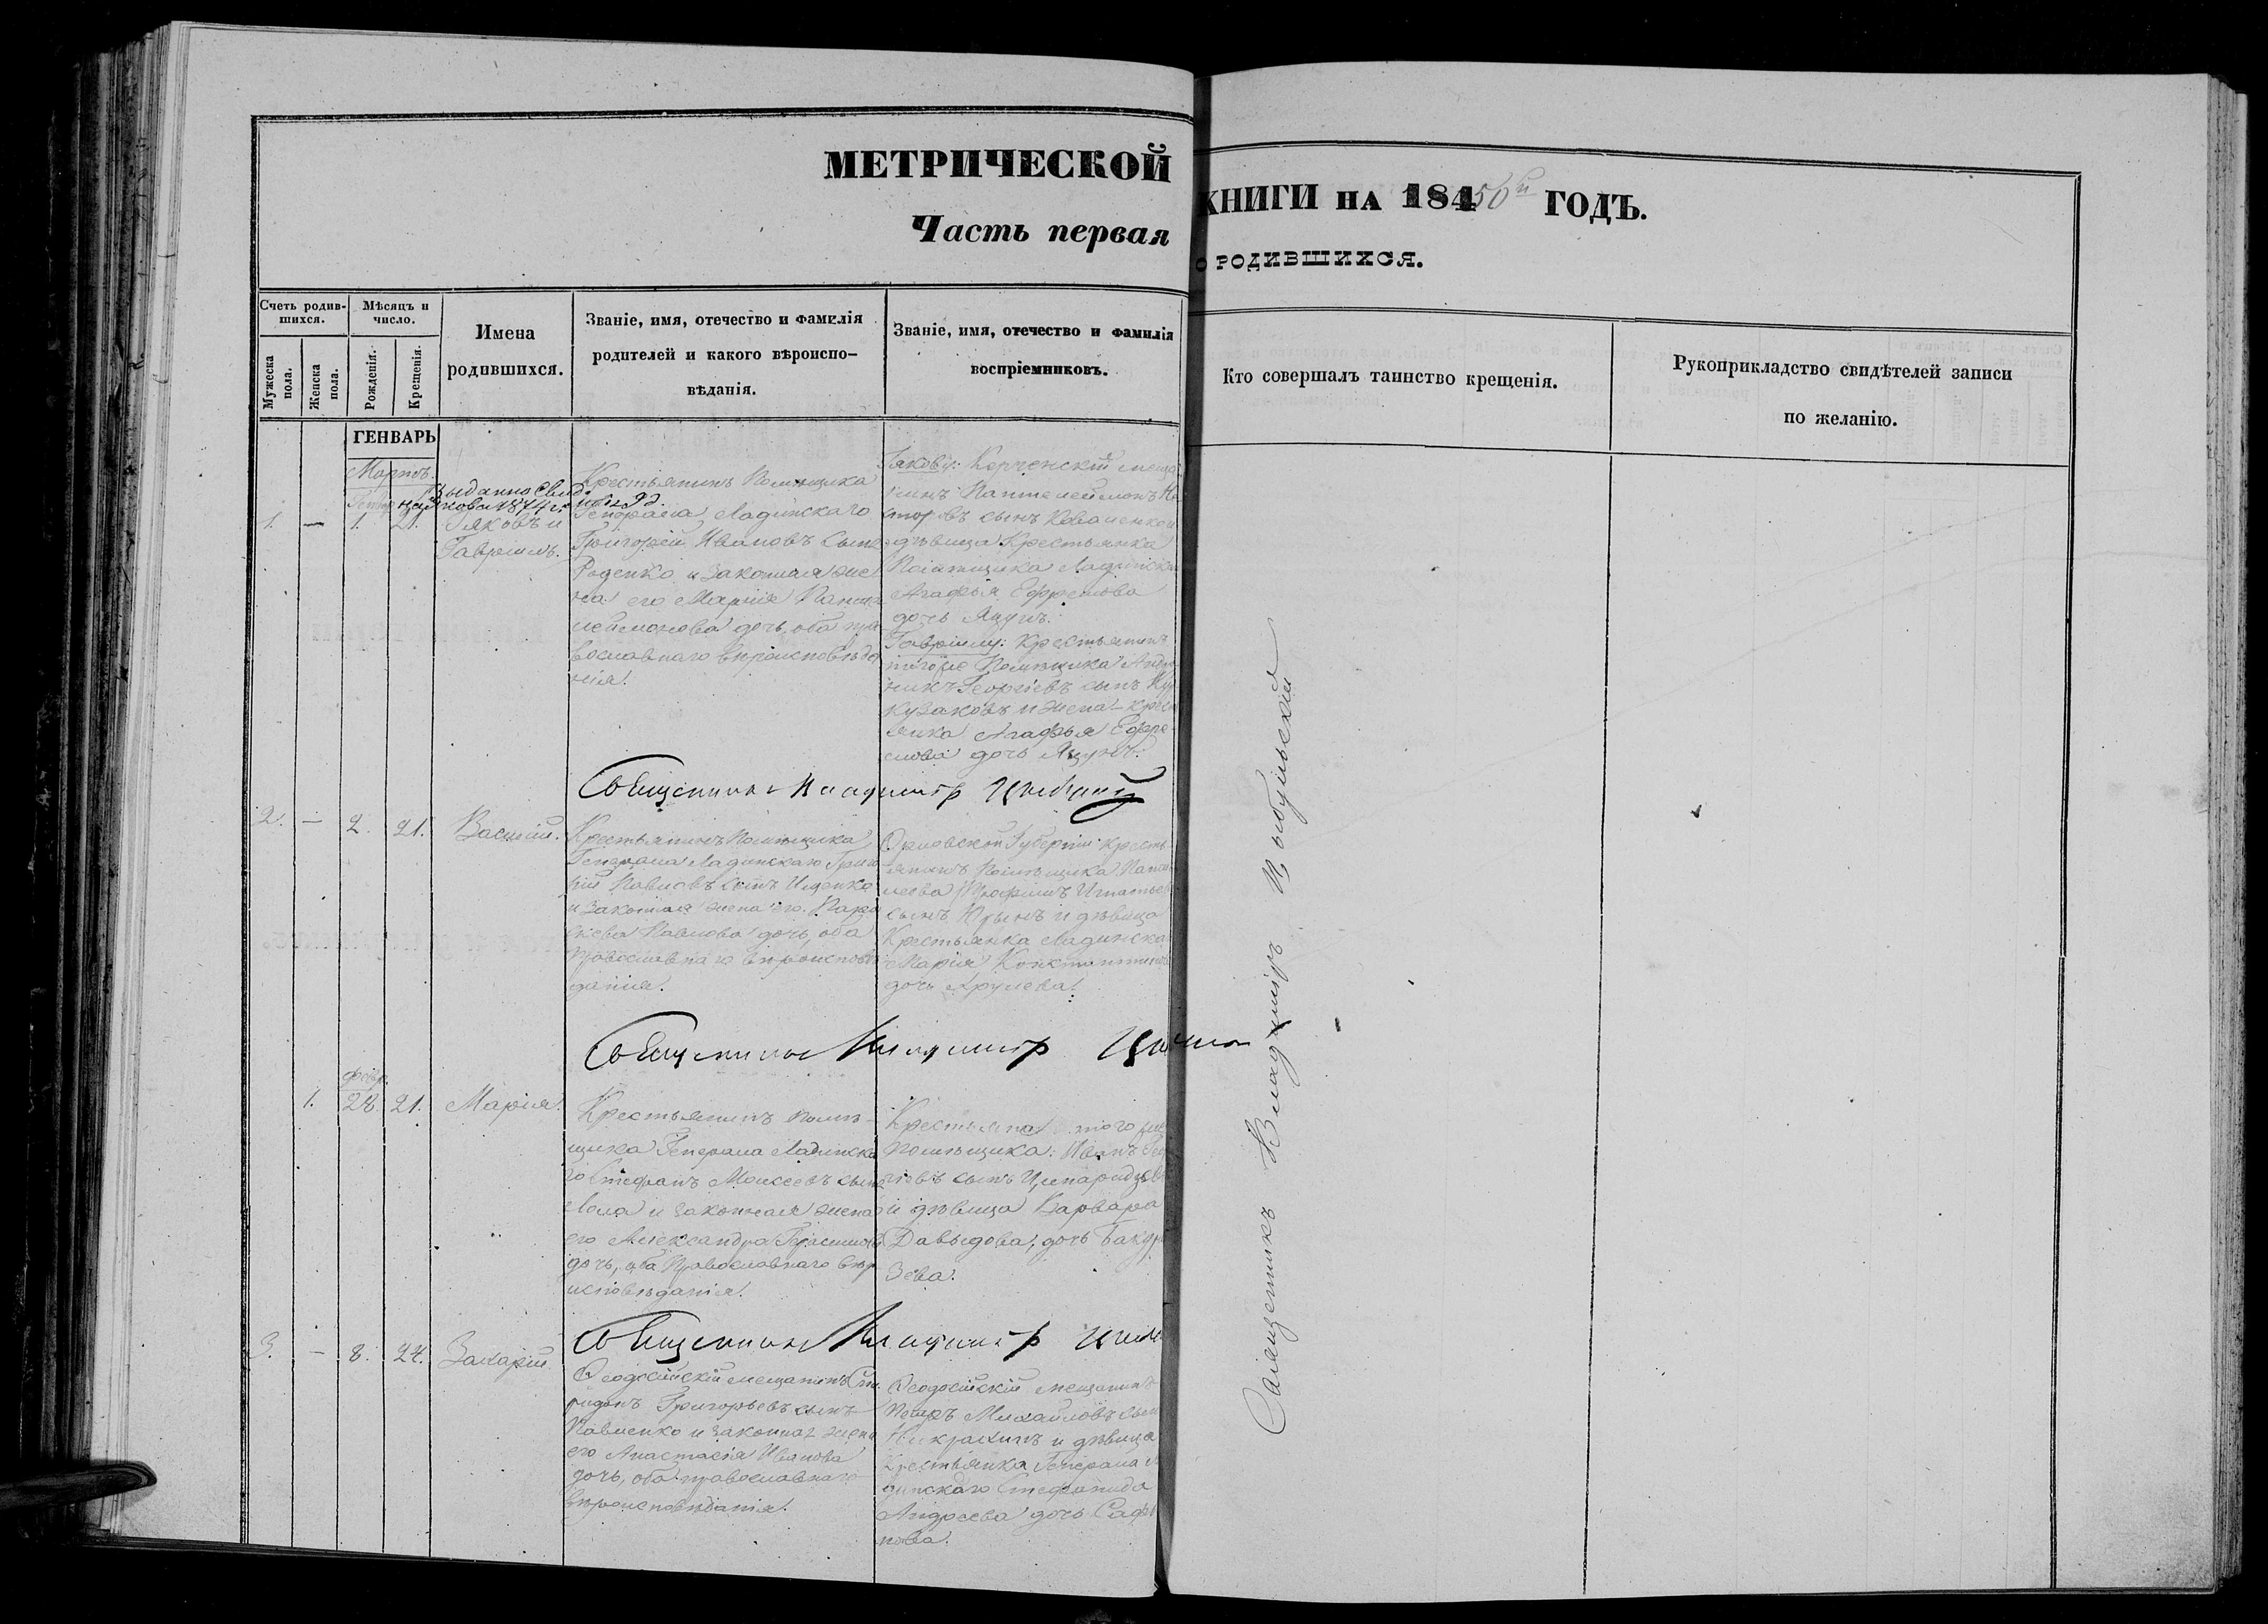 МЕТРИЧЕСКОЙ
КНИГИ НА 184 50й ГОДЪ.
Часть первая
О РОДИВШИХСЯ.
Счетъ родив-
шихся.
Мужеска
пола.
Женска
пола.
Мѣсяцъ и
число.
Рожденія.
Крещенія.
Имена
родившихся.
Званіе, имя, отечество и фамилія
родителей и какого вѣроиспо-
вѣданія.
Званіе, имя, отечество и фамилія
воспріемниковъ.
Кто совершалъ таинство крещенія.
Рукоприкладство свидѣтелей записи
по желанію.
ГЕНВАРЬ
Мартъ.
Выдано Свид.
1874
1. — 1. 21.
Іаковъ и
Гавріилъ.
Крестьянинъ Помѣщика
Генерала Ладинскаго
Григорій Ивановъ сынъ
Роденко и законная же
на его Марія Панте
леймонова дочь, оба пра
вославнаго вѣроисповѣда
нія.
Іакову: Керченскій меща
нинъ Пантелеймонъ Не
сторовъ сынъ Коваленко и
дѣвица Крестьянка
Помѣщика Ладинска
Агафья Ефремова
дочь Яцунъ.
Гавріилу: Крестьянинъ
того же Помѣщика
Георгіевъ сынъ
и жена Крест
янка Агафья Ефре
мова дочь Яцунъ.
Священникъ Владимір
2. — 2. 21.
Василій.
Крестьянинъ Помѣщика
Генерала Ладинскаго Григо
рій Павловъ сынъ Ищенко
и законная жена его Парас
кева Павлова дочь, оба
православнаго вѣроисповѣ
данія.
Орловской Губерніи кресть
янинъ Помѣщика Панте
леева Трофимъ Игнатьев
сынъ и дѣвица
Крестьянка Ладинска
Марія Константинов
дочь Крулева.
Священникъ Владимір
Февр.
1. 28. 21.
Марія.
Крестьянинъ помѣ-
щика Генерала Ладинска
го Стефанъ Моисеевъ сынъ
и законная жена
его Александра Герасимова
дочь, оба Православнаго вѣро
исповѣданія.
Крестьяне того же
помѣщика: Иванъ Геор
гіевъ сынъ
и дѣвица Варвара
Давыдова, дочь Бакур
зева.
Священникъ Владимір
3. — 8. 24.
Захарій.
Феодосійскій мещанинъ Спи
ридонъ Григорьевъ сынъ
Павленко и законная жена
его Анастасія Иванова
дочь, оба православнаго
вѣроисповѣданія.
Феодосійскій мещанинъ
Петръ Михайловъ сын
Некрахинъ и дѣвица
Крестьянка Генерала Ла
динскаго Стефанида
Андреева дочь Сафо
нова.
Священникъ Владиміръ Цыбульскій